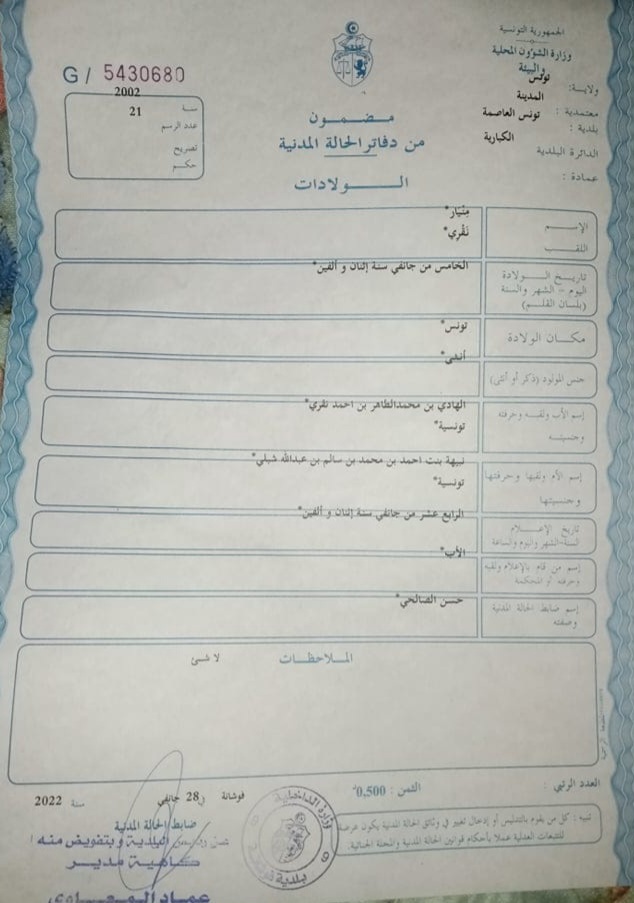 الجمهورية التونسية
وزارة الشؤون المحلية
والبيئة
ولاية: تونس
معتمدية : المدينة
بلدية : تونس العاصمة
الدائرة البلدية الكبارية
عمادة :
G/ 5430680
سنة 2002
عدد الرسم 21
تصريح
حكم
مضمون
من دفاتر الحالة المدنية
الولادات
الإسم مِنْيَار*
اللقب نَقْري*
تاريخ الولادة
اليوم - الشهر والسنة
(بلسان القلم)
الخامس من جانفي سنة إثنان و ألفين*
مكان الولادة
تونس*
جنس المولود (ذكر أو أنثى)
أنثى*
إسم الأب ولقبه وحرفته
وجنسيته
الهادي بن محمدالطاهر بن احمد نقري*
تونسية*
إسم الأم ولقبها وحرفتها
وجنسيتها
نبيهة بنت احمد بن محمد بن سالم بن عبدالله شبلي*
تونسية*
تاريخ الإعلام
السنة-الشهر واليوم والساعة
الرابع عشر من جانفي سنة إثنان و ألفين*
إسم من قام بالإعلام ولقبه
وحرفته أو المحكمة
الأب*
إسم ضابط الحالة المدنية
وصفته
حسن الصالحي*
الملاحظات
لا شئ
العدد الرتبي :
الثمن : 0,500د
فوشانة في 28 جانفي سنة 2022
تنبيه : كل من يقوم بالتدليس أو إدخال تغيير في وثائق الحالة المدنية يكون عرضة
للتتبعات العدلية عملا بأحكام قوانين الحالة المدنية والمجلة الجنائية.
ضابط الحالة المدنية
عن رئيس البلدية وبتفويض منه
كاهية مدير
وزارة الداخلية